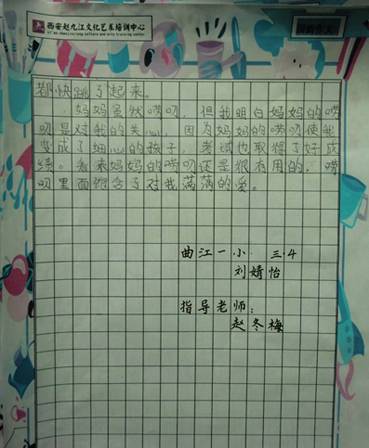 西安赵九江文化艺术培训中心
都快跳了起来。
妈妈虽然唠叨，但我明白妈妈的唠
叨是对我的关心，因为妈妈的唠叨使我
变成了细心的孩子，考试也取得了好成
绩。看来妈妈的唠叨还是很有用的，唠
叨里面饱含了对我满满的爱。
曲江一小 三.4
刘婧怡
指导老师：
赵冬梅